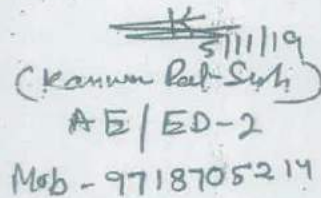 5/11/19
(Kanwar Pal Singh)
AE/ED-2
Mob - 9718705214